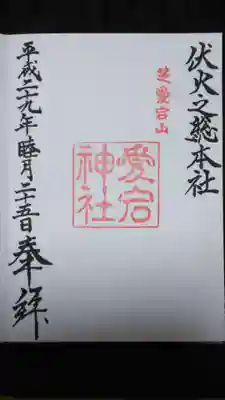 伏火之総本社
芝愛宕山
愛宕
神社
平成二十九年睦月二十五日奉拝